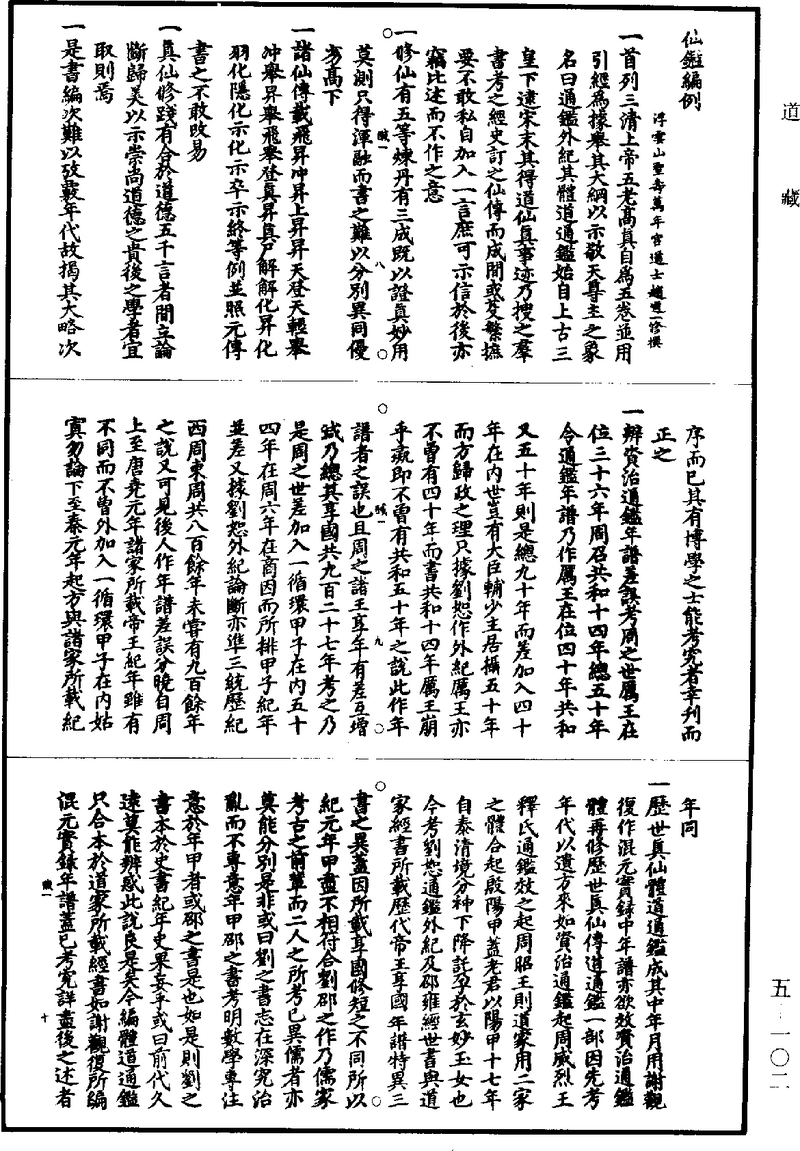 道藏
仙鑑編例
浮雲山聖壽萬年宮道士趙道一修撰
一首列三清上帝五老高真自爲五卷並用
引經爲據舉其大綱以示敬天尊主之象
名曰通鑑外紀其體道通鑑始自上古三
皇下逮宋末其得道仙真事迹乃搜之羣
書考之經史訂之仙傳而成間或芟繁摭
要不敢私自加入一言庶可示信於後亦
竊比述而不作之意
一修仙有五等煉丹有三成既以證真妙用
莫測只得渾融而書之難以分別異同優
劣高下
一諸仙傳載飛昇冲昇上昇昇天登天輕舉
冲舉昇舉飛舉登真昇真尸解解化昇化
羽化隱化示化示卒示終等例並照元傳
書之不敢改易
一真仙修踐有合於道德五千言者間立論
斷歸美以示崇尚道德之貴後之學者宜
取則焉
一是書編次難以攷覈年代故揭其大略次
鹹一
八
序而已其有博學之士能考究者幸刊而
正之
一辨資治通鑑年譜差誤考周之世厲王在
位三十六年周召共和十四年總五十年
今通鑑年譜乃作厲王在位四十年共和
又五十年則是總九十年而差加入四十
年在內世豈有大臣輔少主居攝五十年
而方歸政之理只據劉恕作外紀厲王亦
不曾有四十年而書共和十四年厲王崩
乎彘即不曾有共和五十年之說此作年
譜者之誤也且周之諸王享年有差互增
弑乃總其享國共九百二十七年考之乃
是周之世差加入一循環甲子在內五十
四年在周六年在商因而所排甲子紀年
並差又據劉恕外紀論斷亦準三統歷紀
西周東周共八百餘年未嘗有九百餘年
之說又可見後人作年譜差誤分曉自周
上至唐堯元年諸家所載帝王紀年雖有
不同而不曾外加入一循環甲子在內姑
寘勿論下至秦元年起方與諸家所載紀
鹹一
九
年同
一歷世真仙體道通鑑成其中年月用謝觀
復作混元實錄中年譜亦欲效資治通鑑
體再修歷世真仙傳道通鑑一部因先考
年代以遺方來如資治通鑑起周威烈王
釋氏通鑑效之起周昭王則道家用二家
之體合起殷陽甲蓋老君以陽甲十七年
自泰清境分神下降託孕於玄妙玉女也
今考劉恕通鑑外紀及邵雍經世書與道
家經書所載歷代帝王享國年譜特異三
書之異蓋因所載享國修短之不同所以
紀元年甲盡不相符合劉邵之作乃儒家
考古之前輩而二人之所考已異儒者亦
莫能分別是非或曰劉之書志在深究治
亂而不專意年甲邵之書考明數學專注
意於年甲者或邵之書是也如是則劉之
書本於史書紀年史果妄乎或曰前代久
遠莫能辨惑此說良是矣今編體道通鑑
只合本於道家所載經書如謝觀復所編
混元實錄年譜蓋已考究詳盡後之述者
鹹一
十
五—一〇二